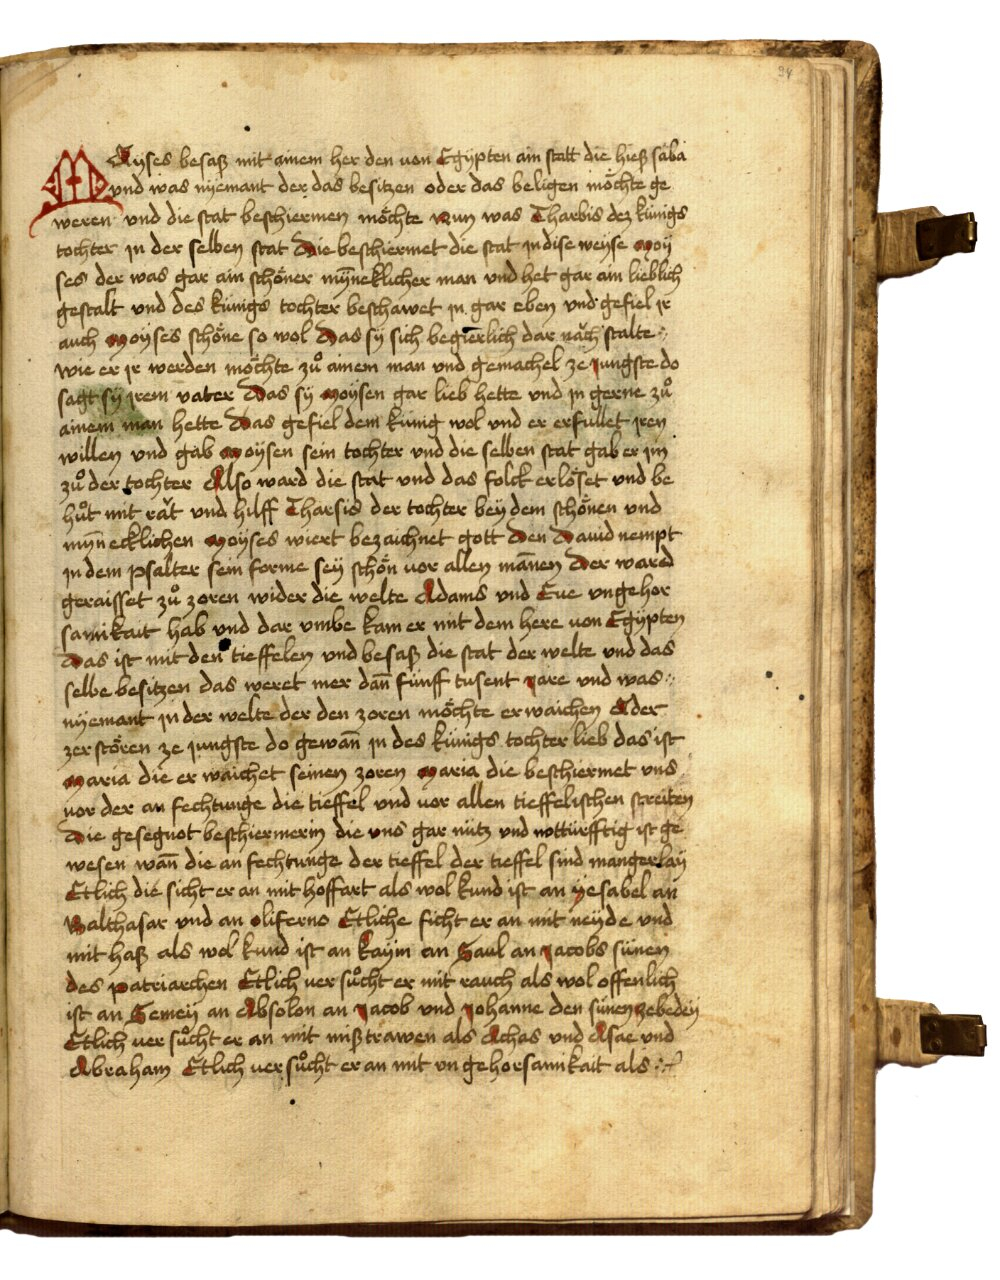 94
MOyses besaß mit ainem her den von Egypten ain statt die hieß saba
vnd was nyemant der das besitzen oder das beligen möchte ge
weren vnd die stat beschiermen möchte Nun was Tharbis dez künigs
tochter in der selben stat Die beschiermet die stat in dise weyse Moy
ses der was gar ain schöner myneklicher man vnd het gar ain lieblich
gestalt vnd des künigs tochter beschawet in gar eben vnd gefiel ir
auch Moyses schöne so wol Das sy sich begierlich dar năch stalte :.
wie er ir werden möchte zuͦ ainem man vnd gemachel ze Jungste do
sagt sy irem vater Das sy Moysen gar lieb hette vnd in gerne zuͦ
ainem man hette Das gefiel dem künig wol vnd er erfullet iren
willen vnd gab Moysen sein tochter vnd die selben stat gab er im
zuͦ der tochter Also ward die stat vnd das folck erlöset vnd be
huͦt mit răt vnd hilff Tharsis der tochter bey dem schönen vnd
myñecklichen Moyses wiert bezaichnet gott Den Dauid nempt
in dem psalter sein forme sey schön vor allen mañen Der ward
geraisset zuͦ zoren wider die welte Adams vnd Eue vngehor
samikait hab vnd dar vmbe kam er mit dem here von Egypten
Das ist mit den tieffelen vnd besaß die stat der welte vnd das
selbe besitzen das weret mer dañ fünff tusent Jare vnd was :.
nyemant in der welte der den zoren möchte erwaichen Oder
zerstören ze jungste do gewañ in des künigs tochter lieb das ist
Maria die er waichet seinen zoren Maria die beschiermet vns
vor der an fechtunge die tieffel vnd vor allen tieffelischen streiten
Die gesegnot beschiermerin die vns gar nütz vnd notturfftig ist ge
wesen wañ die an fechtunge der tieffel der tieffel sind mangerlay
Etlich die sicht er an mit hoffart als wol kund ist an yesabel an
Balthasar vnd an oliferno Etliche ficht er an mit neyde vnd
mit haß als wol kund ist an kaym an Saul an Jacobs sünen
des patriarchen Etlich versuͦcht er mit rauch als wol offenlich
ist an Semey an Absolon an Jacob vnd Johanne den sünen zebedey
Etlich ver suͦcht er an mit mißtrawen als Achas vnd Asae vnd
Abraham Etlich ver suͦcht er an mit vn gehorsamikait als :.